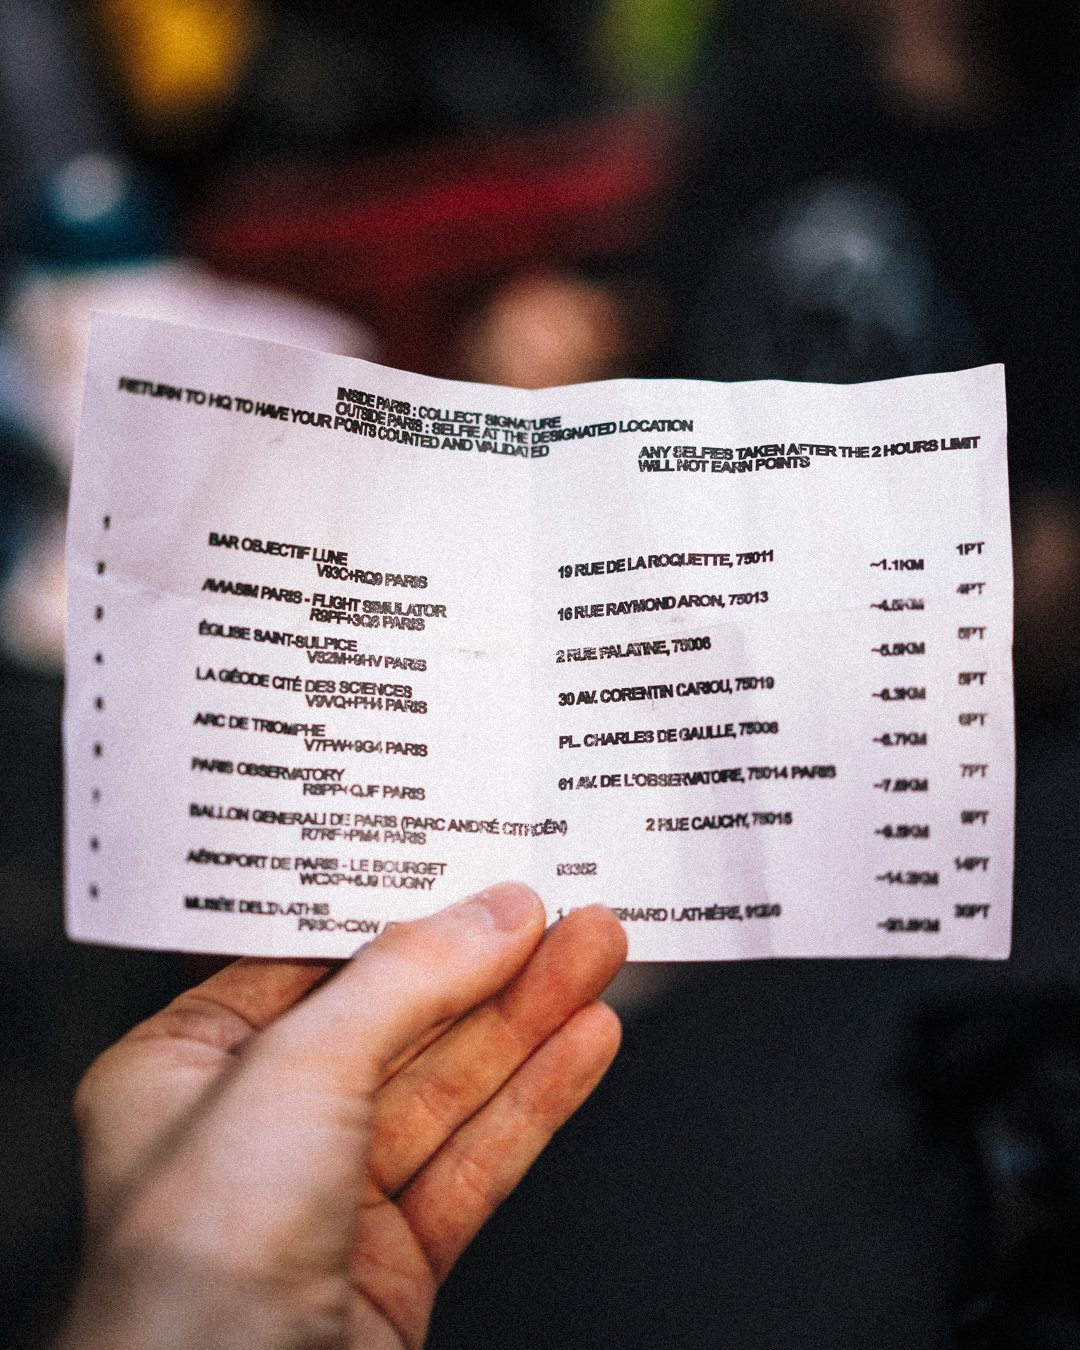 INSIDE PARIS : COLLECT SIGNATURE
OUTSIDE PARIS : SELFIE AT THE DESIGNATED LOCATION
RETURN TO HQ TO HAVE YOUR POINTS COUNTED AND VALIDATED
ANY SELFIES TAKEN AFTER THE 2 HOURS LIMIT
WILL NOT EARN POINTS
1
BAR OBJECTIF LUNE
V93C+RQ9 PARIS
19 RUE DE LA ROQUETTE, 75011
~1.1KM
1PT
2
AVIASIM PARIS - FLIGHT SIMULATOR
PARIS
16 RUE RAYMOND ARON, 75013
4PT
3
ÉGLISE SAINT-SULPICE
V82M+9HV PARIS
2 RUE PALATINE, 75006
5PT
4
LA GÉODE CITÉ DES SCIENCES
V9VQ+PH4 PARIS
30 AV. CORENTIN CARIOU, 75019
~6.3KM
5PT
ARC DE TRIOMPHE
V7FW+9G4 PARIS
PL. CHARLES DE GAULLE, 75008
~6.7KM
6PT
PARIS OBSERVATORY
R8PP+QJF PARIS
61 AV. DE L'OBSERVATOIRE, 75014 PARIS
7PT
BALLON GENERALI DE PARIS (PARC ANDRÉ CITROËN)
R7RF+PM4 PARIS
2 RUE CAUCHY, 75015
9PT
AÉROPORT DE PARIS - LE BOURGET
WCXP+6J9 DUGNY
93352
14PT
MUSÉE
LATHIÈRE,